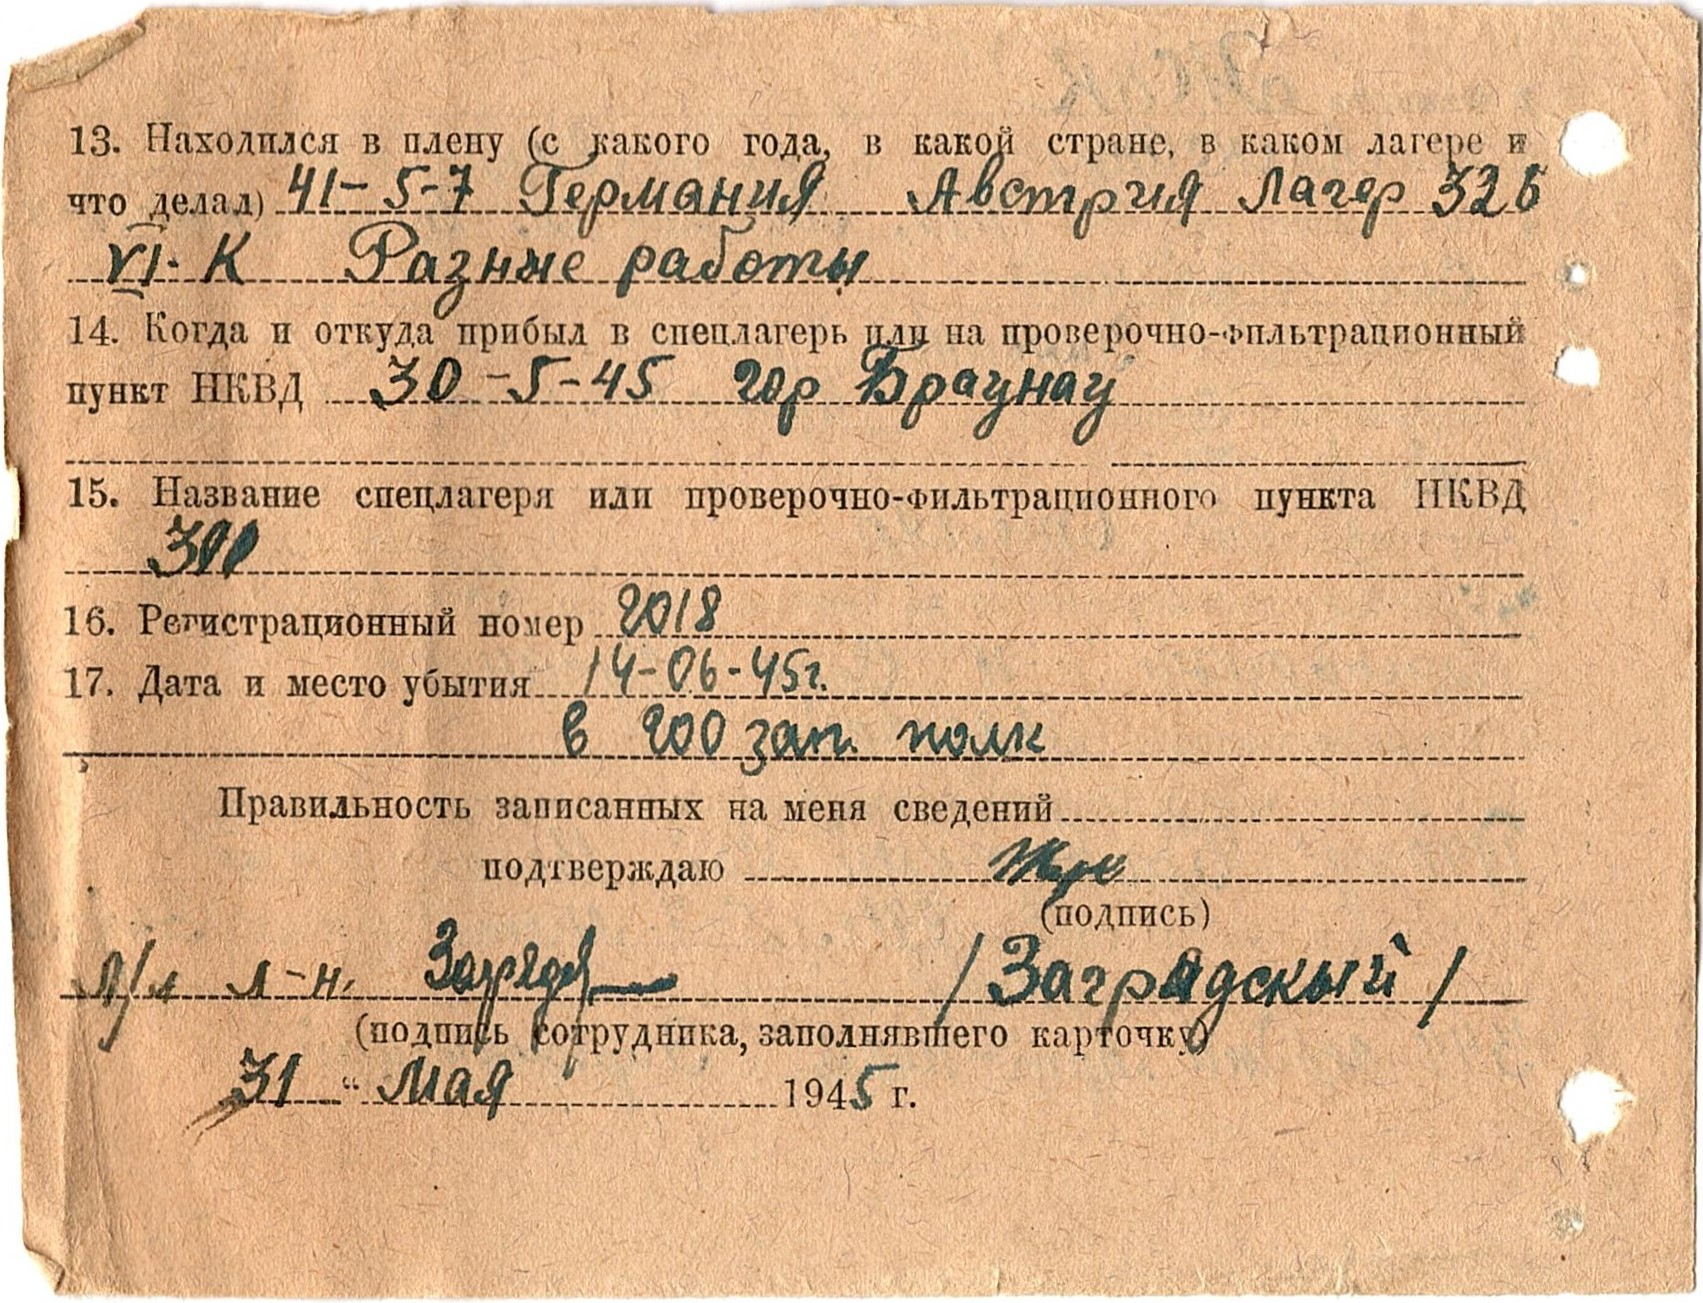 13. Находился в плену (с какого года, в какой стране, в каком лагере и
что делал) 41-5-7 Германия Австрия Лагер 326
VI-К Разные работы
14. Когда и откуда прибыл в спецлагерь или на проверочно-фильтрационный
пункт НКВД 30-5-45 гор Браунау
15. Название спецлагеря или проверочно-фильтрационного пункта НКВД
300
16. Регистрационный номер 2018
17. Дата и место убытия 14-06-45г.
в 200 зап. полк
Правильность записанных на меня сведений
подтверждаю Жук
(подпись)
л-н. /Заградскый/
(подпись сотрудника, заполнявшего карточку)
31 " Мая 1945 г.